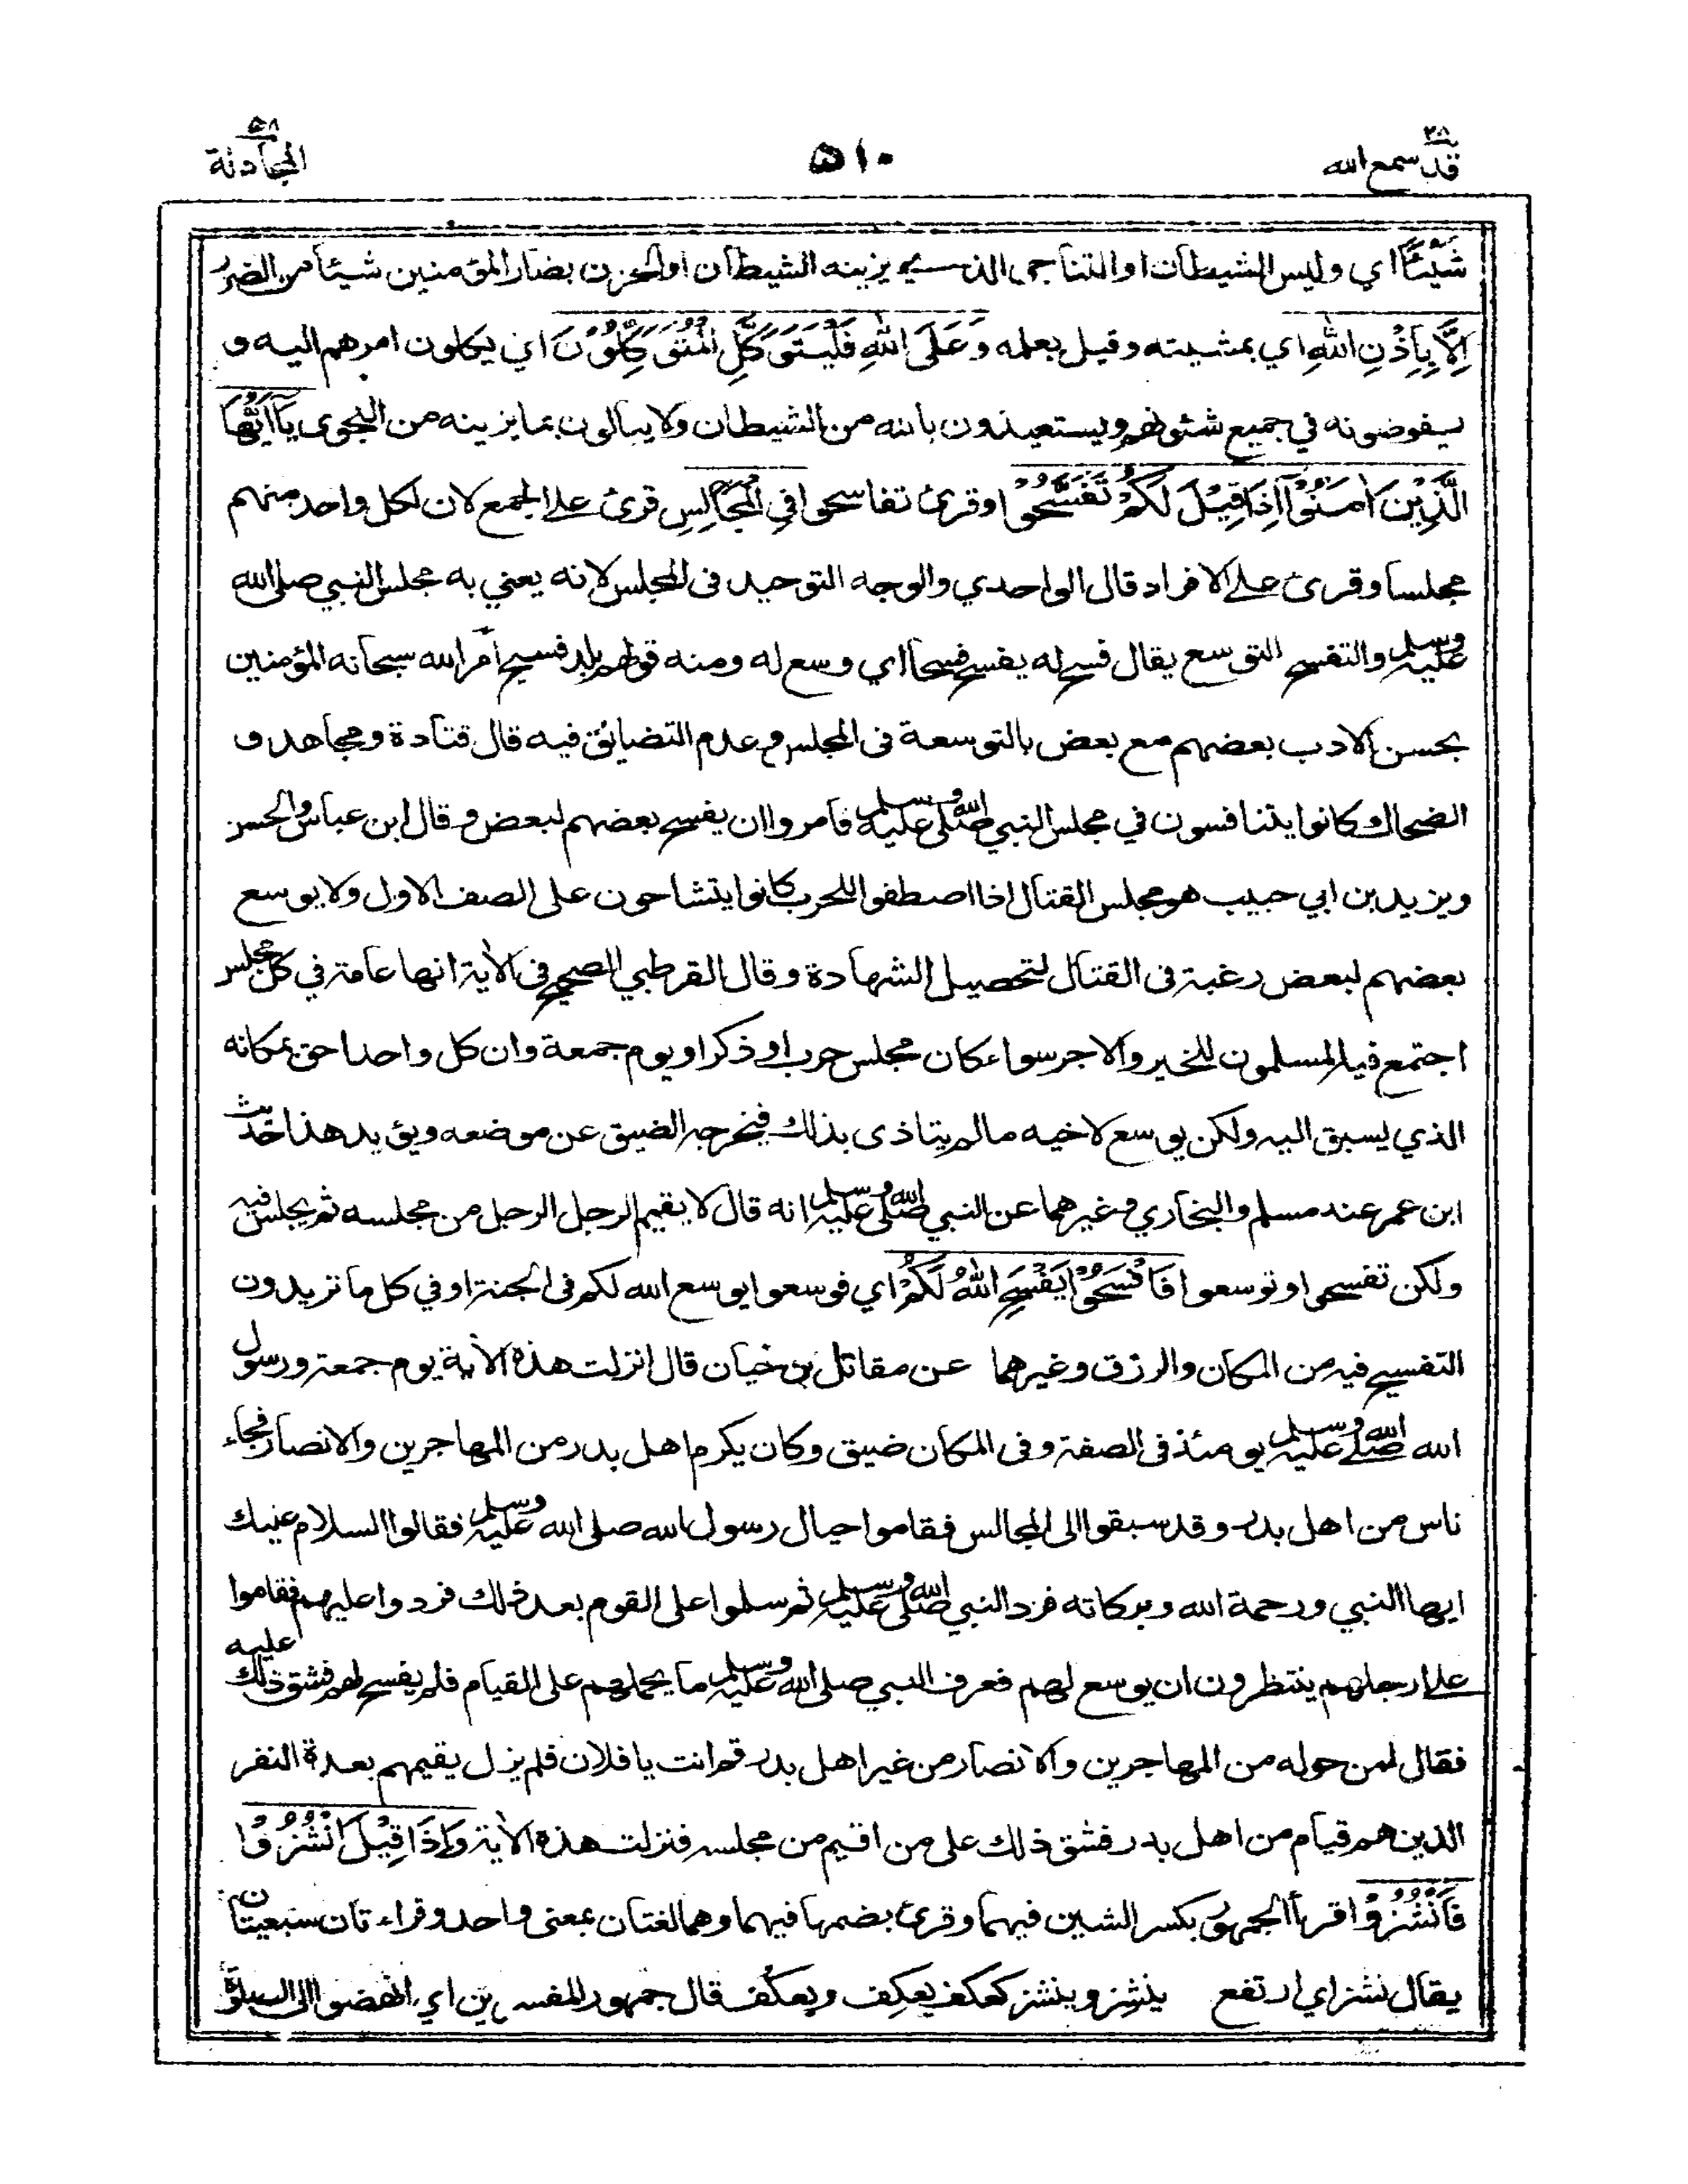 قد سمع الله ٢٨
٥١٠
المجادلة ٥٨
شَيْـًٔا اي وليس الشيطان او التناجي الذي يزينه الشيطان او الحزن بضار المؤمنين شيئا من الضرر
اِلَّا بِاِذْنِ اللّٰهِ اي بمشيته وقيل بعلمه وَعَلَى اللّٰهِ فَلْيَتَوَكَّلِ الْمُؤْمِنُوْنَ اي يكلون امرهم اليه و
يفوضونه في جميع شئونهم ويستعيذون بالله من الشيطان ولا يبالون بما يزينه من النجوى يٰٓاَيُّهَا
الَّذِيْنَ اٰمَنُوْٓا اِذَا قِيْلَ لَكُمْ تَفَسَّحُوْا وقرئ تفاسحوا فِي الْمَجٰلِسِ قرئ على الجمع لان لكل واحد منهم
مجلسا وقرئ على الافراد قال الواحدي والوجه التوحيد في المجلس لانه يعني به مجلس النبي صلى الله
عليه وسلم والتفسح التوسع يقال فسح له يفسح فسحا اي وسع له ومنه قولهم بلد فسيح أمر الله سبحانه المؤمنين
بحسن الادب بعضهم مع بعض بالتوسعة في المجلس وعدم التضائق فيه قال قتادة ومجاهد و
الضحاك كانوا يتنافسون في مجلس النبي صلى الله عليه وسلم فامروا ان يفسح بعضهم لبعض وقال ابن عباس والحسن
ويزيد بن ابي حبيب هو مجلس القتال اذا اصطفوا للحرب كانوا يتشاحون على الصف الاول ولا يوسع
بعضهم لبعض رغبة في القتال لتحصيل الشهادة وقال القرطبي الصحيح في الاية انها عامة في كل مجلس
اجتمع فيه المسلمون للخير والاجر سواء كان مجلس حرب او ذكر او يوم جمعة وان كل واحد احق بمكانه
الذي يسبق اليه ولكن يوسع لاخيه ما لم يتاذى بذلك فيخرجه الضيق عن موضعه ويؤيد هذا حديث
ابن عمر عند مسلم والبخاري وغيرهما عن النبي صلى الله عليه وسلم انه قال لا يقيم الرجل الرجل من مجلسه ثم يجلس فيه
ولكن تفسحوا وتوسعوا فَافْسَحُوْا يَفْسَحِ اللّٰهُ لَكُمْ اي فوسعوا يوسع الله لكم في الجنة او في كل ما تريدون
التفسيح فيه من المكان والرزق وغيرهما عن مقاتل بن حيان قال انزلت هذه الاية يوم جمعة ورسول
الله صلى الله عليه وسلم يومئذ في الصفة وفي المكان ضيق وكان يكرم اهل بدر من المهاجرين والانصار فجاء
ناس من اهل بدر وقد سبقوا الى المجالس فقاموا حيال رسول الله صلى الله عليه وسلم فقالوا السلام عليك
ايها النبي ورحمة الله وبركاته فرد النبي صلى الله عليه وسلم ثم سلموا على القوم بعد ذلك فردوا عليهم فقاموا
على ارجلهم ينتظرون ان يوسع لهم فعرف النبي صلى الله عليه وسلم ما يحملهم على القيام فلم يفسح لهم فشق ذلك عليه
فقال لمن حوله من المهاجرين والانصار من غير اهل بدر قم انت يا فلان فلم يزل يقيمهم بعدة النفر
الذين هم قيام من اهل بدر فشق ذلك على من اقيم من مجلسه فنزلت هذه الاية وَاِذَا قِيْلَ انْشُزُوْا
فَانْشُزُوْا قرأ الجمهور بكسر الشين فيهما وقرئ بضمها فيهما وهما لغتان بمعنى واحد وقراءتان سبعيتان
يقال نشز اي ارتفع ينشِز وينشز كعكف يعكِف ويعكُف قال جمهور المفسرين اي انهضوا الى الصلوة